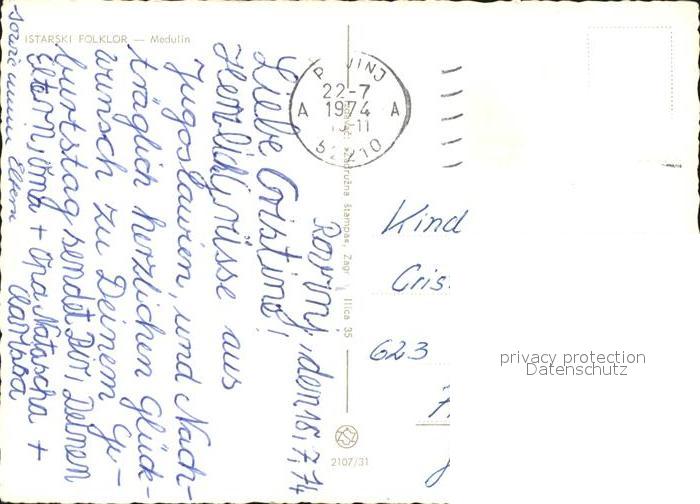 ISTARSKI FOLKLOR — Medulin
Rovinj, den 18.7.74
Liebe Cristine!
Herzlich grüsse aus
Jugoslawien, und Nach-
träglich herzlichen Glück-
wunsch zu Deinem Ge-
burtstag sendet Dir, Deinen
Eltern, Oma + Opa Natascha +
sowie meine Eltern
22-7
1974
A A
52210
Zadružna štampa, Zagreb
Ilica 35
2107/31
Kind
Cris
623
privacy protection
Datenschutz